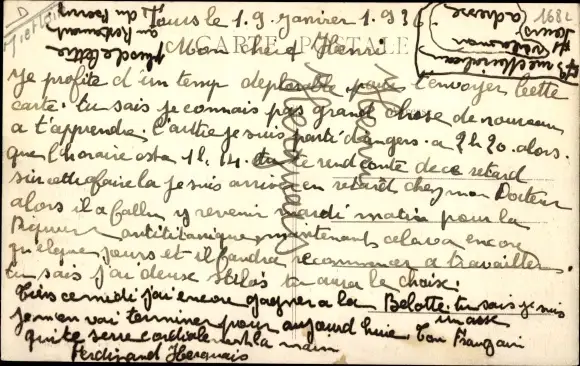 Tours le 19 janvier 1936
CARTE POSTALE
Mon cher Henri
Je profite d'un temp deplorable pour t'envoyer cette
carte. tu sais je connais pas grand chose de nouveau
a t'apprendre. l'autre je suis parti d'angers. a 2h20. alors.
que l'horaire est a 1h. 14. tu te rend conte de ce retard
sur cette faire la je suis arriva en retard chez mon Docteur
alors il a fallu y revenir mardi matin pour la
Biqure antitetanique maintenant cela va encore
quelque jours et il faudra recommencer a travailler.
tu sais j'ai deux stilos tu aura le choix.
Tiens ce midi j'ai encore gagner a la Belotte. tu sais je suis
un ass
je m'en vai terminer pour aujourd huie Ton Frangain
qui te serre cordialement la main
Ferdinand Hersquais
plus de lettre
au Regiment
du
adresse
Tours
168
D